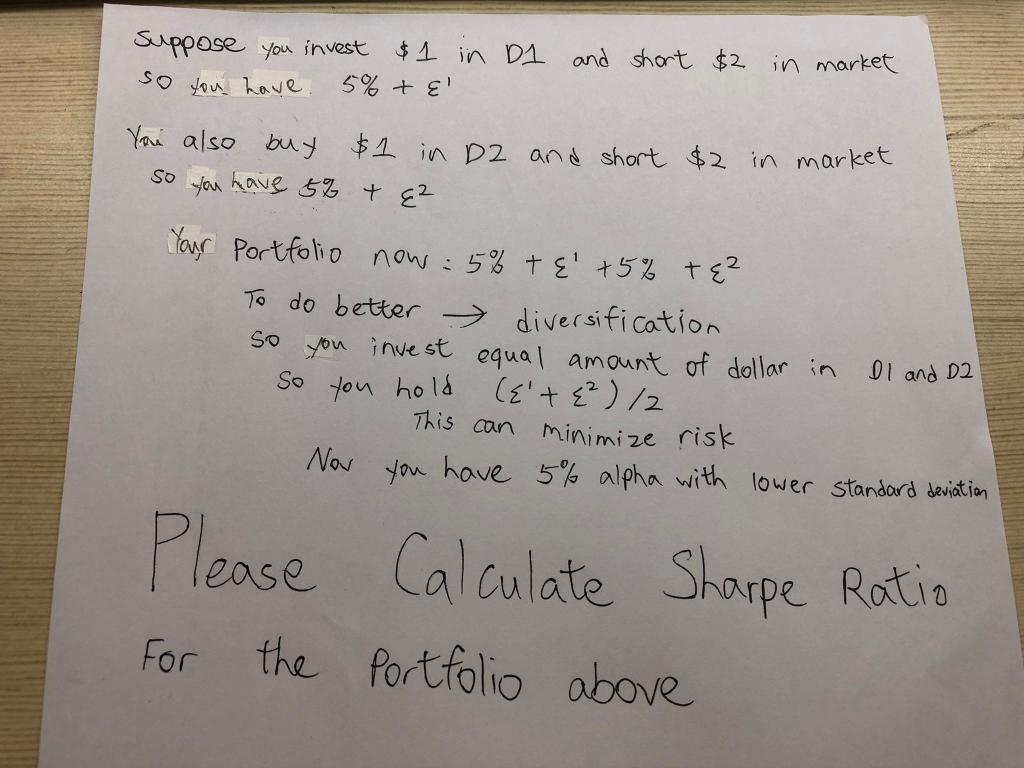 Suppose you invest $1 in D1 and short $2 in market
so you have 5% + ε¹
You also buy $1 in D2 and short $2 in market
so you have 5% + ε²
Your Portfolio now : 5% + ε¹ + 5% + ε²
To do better → diversification
So you invest equal amount of dollar in D1 and D2
So you hold (ε¹ + ε²) /2
This can minimize risk
Nov you have 5% alpha with lower standard deviation
Please Calculate Sharpe Ratio
For the Portfolio above